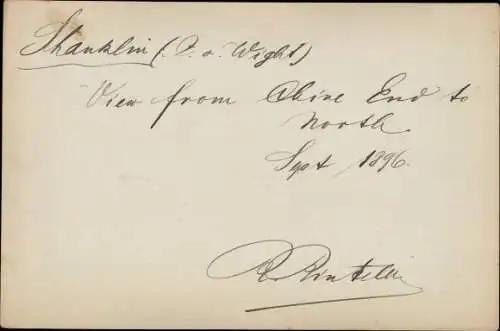 Shanklin (I. o. Wight)
View from Chine End to
North
Sept 1896.